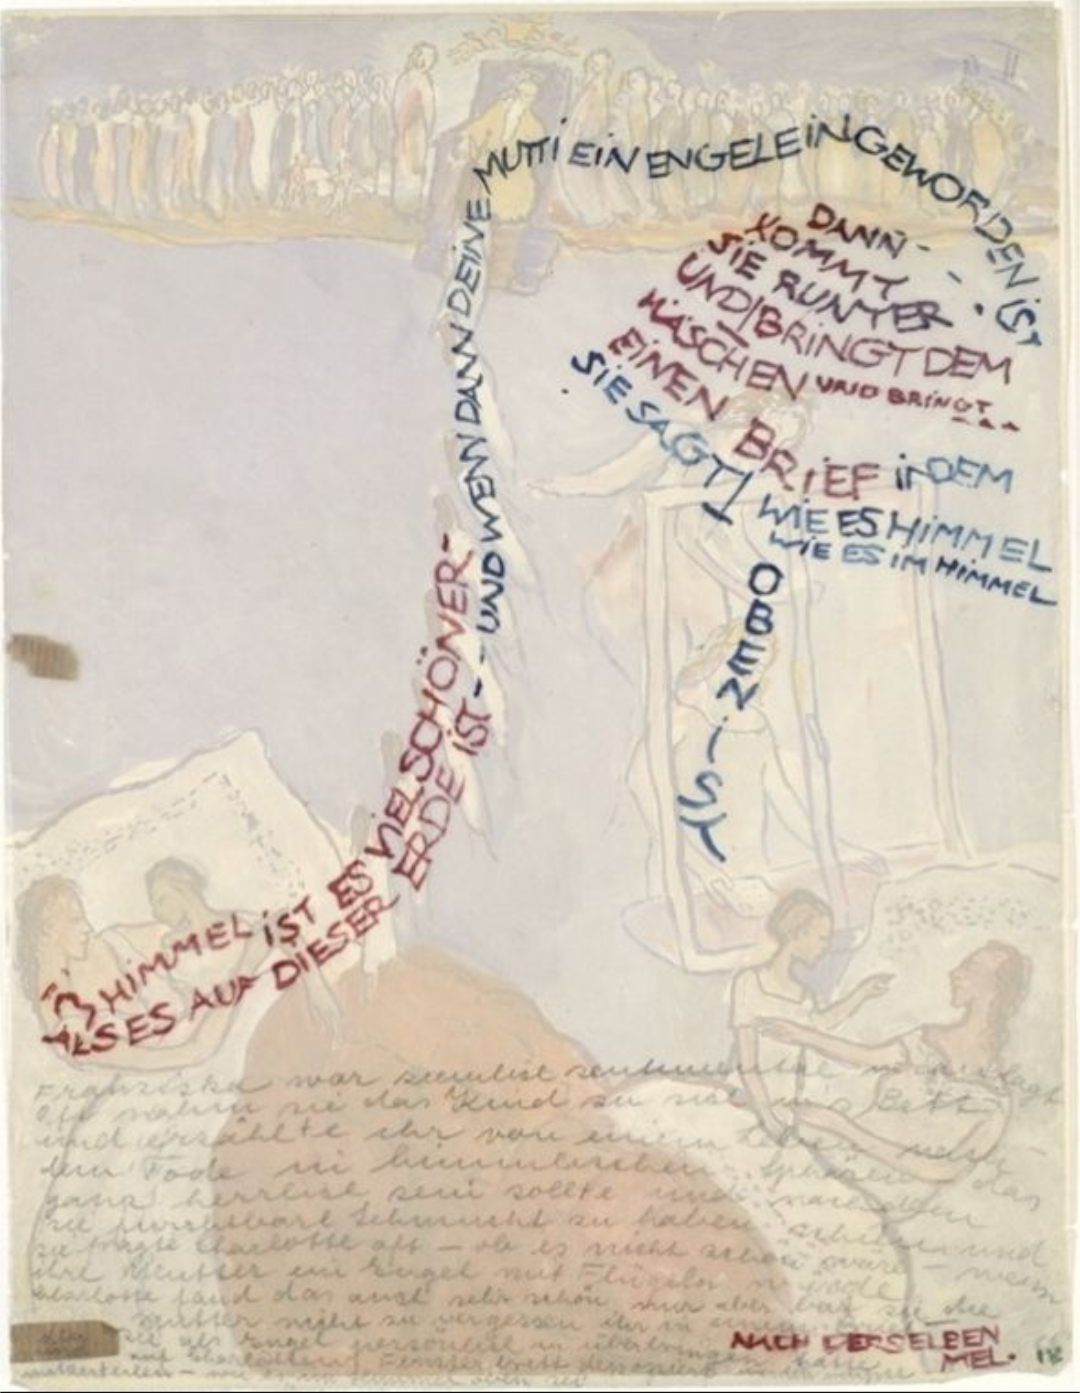 IM HIMMEL IST ES VIEL SCHÖNER-
ALS ES AUF DIESER ERDE IST - -
UND WENN DANN DEINE MUTTI EIN ENGELEIN GEWORDEN IST
DANN - - -
KOMMT
SIE RUNTER
UND BRINGT DEM
HÄSCHEN UND BRINGT...
EINEN BRIEF IN DEM
SIE SAGT WIE ES HIMMEL
WIE ES IM HIMMEL
OBEN IST
Franziska war ziemlich sentimental veranlagt
Oft nahm sie das Kind zu sich ins Bett
und erzählte ihr von einem Leben nach
dem Tode in himmlischen Sphären das
ganz herrlich sein sollte und nachdem
sie furchtbare Sehnsucht zu haben schien und
sie fragte Charlotte oft – ob es nicht schön wäre – wenn
ihre Mutter ein Engel mit Flügeln würde
Charlotte fand das auch sehr schön, nur aber bat sie die
Mutter nicht zu vergessen ihr in einem
sie als Engel persönlich zu überbringen
Charlottens Fenster
mitzuteilen – wie es im Himmel oben sei
NACH DERSELBEN
MEL.